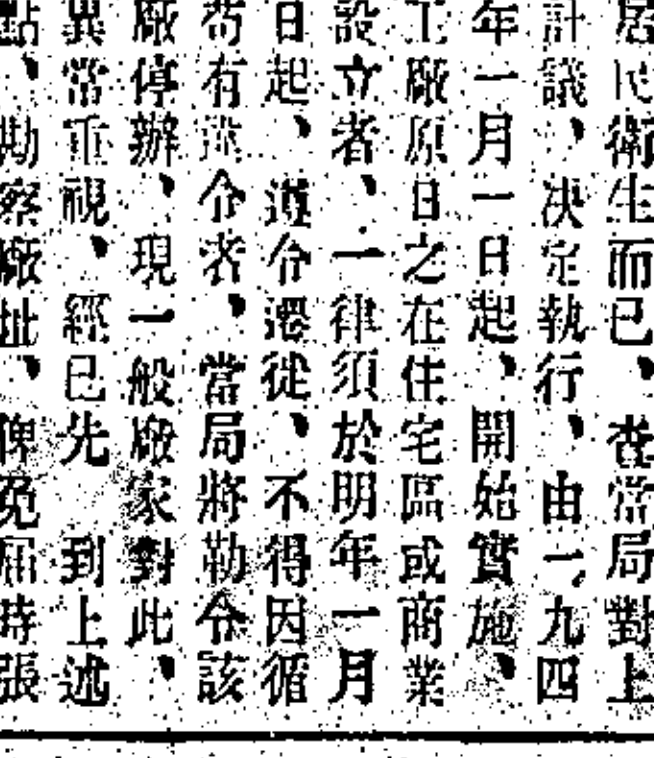 居民衛生而已、查當局對上
計議、決定執行、由一九四
年一月一日起、開始實施、
工廠原日之在住宅區或商業
設立者、一律須於明年一月
日起、遵令遷徙、不得因循
苟有違令者、當局將勒令該
廠停辦、現一般廠家對此、
異常重視、經已先 到上述
點、勘察廠址、俾免屆時張